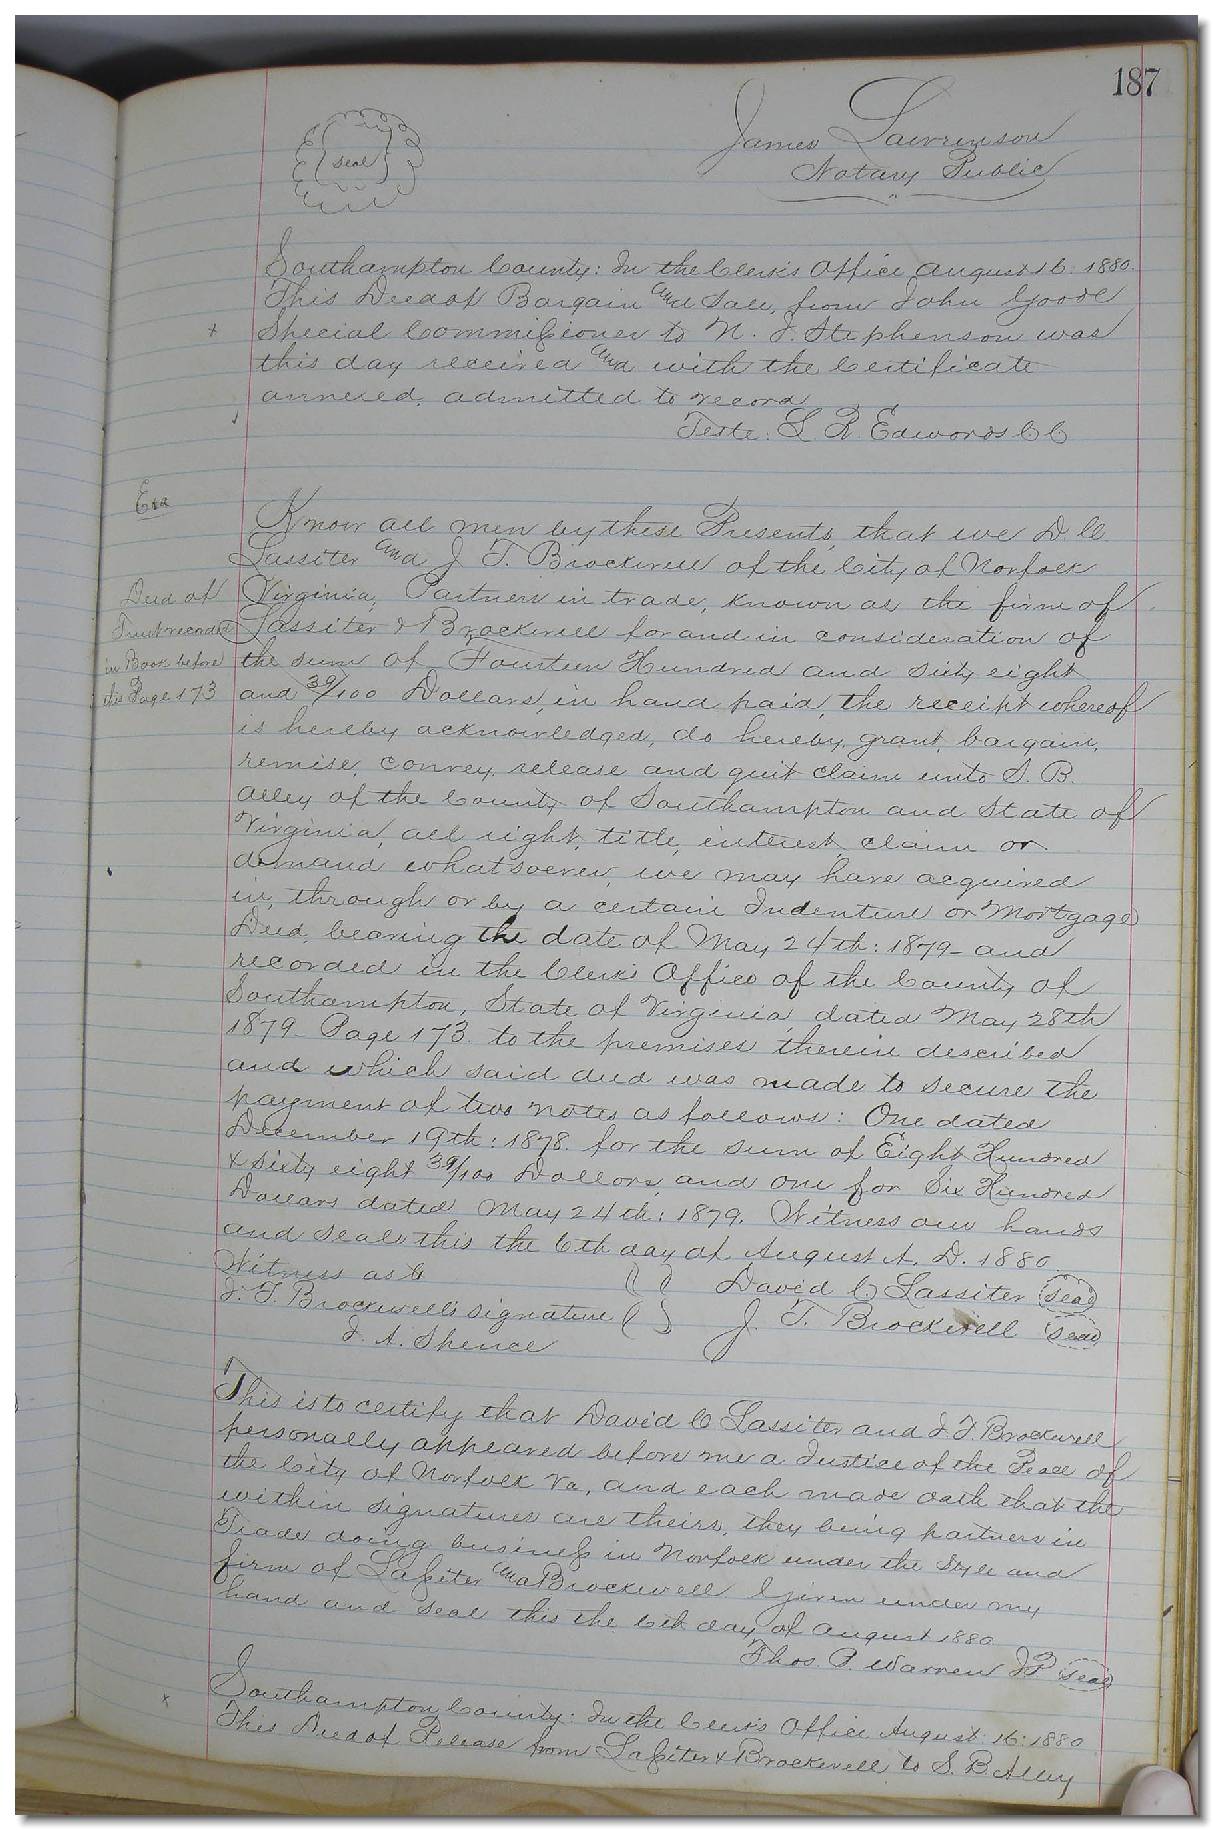 187
seal
James Lawrenson
Notary Public
Southampton County: In the Clerk's Office August 16: 1880.
This Deed of Bargain and Sale, from John Goode
Special Commissioner to N. J. Stephenson was
this day received and with the Certificate
annexed, admitted to record
Teste: L R Edwards C C
Exa
Know all men by these Presents, that we D. C.
Lassiter and J. T. Brockwell of the City of Norfolk
Deed of
Virginia, Partners in trade, known as the firm of
Trust recorded
Lassiter & Brockwell for and in consideration of
in Book before
the sum of Fourteen Hundred and sixty eight
this Page 173
and 39/100 Dollars, in hand paid, the receipt whereof
is hereby acknowledged, do hereby grant, bargain,
remise, convey, release and quit claim unto S. B.
Alley of the County of Southampton and State of
Virginia, all right, title, interest, claim or
demand whatsoever, we may have acquired
in, through or by a certain Indenture or Mortgage
Deed, bearing the date of May 24th: 1879 - and
recorded in the Clerk's Office of the County of
Southampton, State of Virginia, dated May 28th
1879 - Page 173. to the premises therein described
and which said deed was made to secure the
payment of two notes as follows: One dated
December 19th: 1878. for the sum of Eight Hundred
& sixty eight 39/100 Dollars, and one for Six Hundred
Dollars dated May 24th: 1879. Witness our hands
and seals this the 6th day of August A. D. 1880.
Witness as to
David C Lassiter seal
J. T. Brockwell's signature
J. T. Brockwell seal
J. A. Spence
This is to certify that David C Lassiter and J. T. Brockwell
personally appeared before me a Justice of the Peace of
the City of Norfolk Va, and each made oath that the
within signatures are theirs, they being partners in
Trade doing business in Norfolk under the style and
firm of Lassiter and Brockwell Given under my
hand and seal this the 6th day of August 1880
Thos. P. Warren JP seal
Southampton County: In the Clerk's Office August 16: 1880
This Deed of Release from Lassiter & Brockwell to S. B. Alley